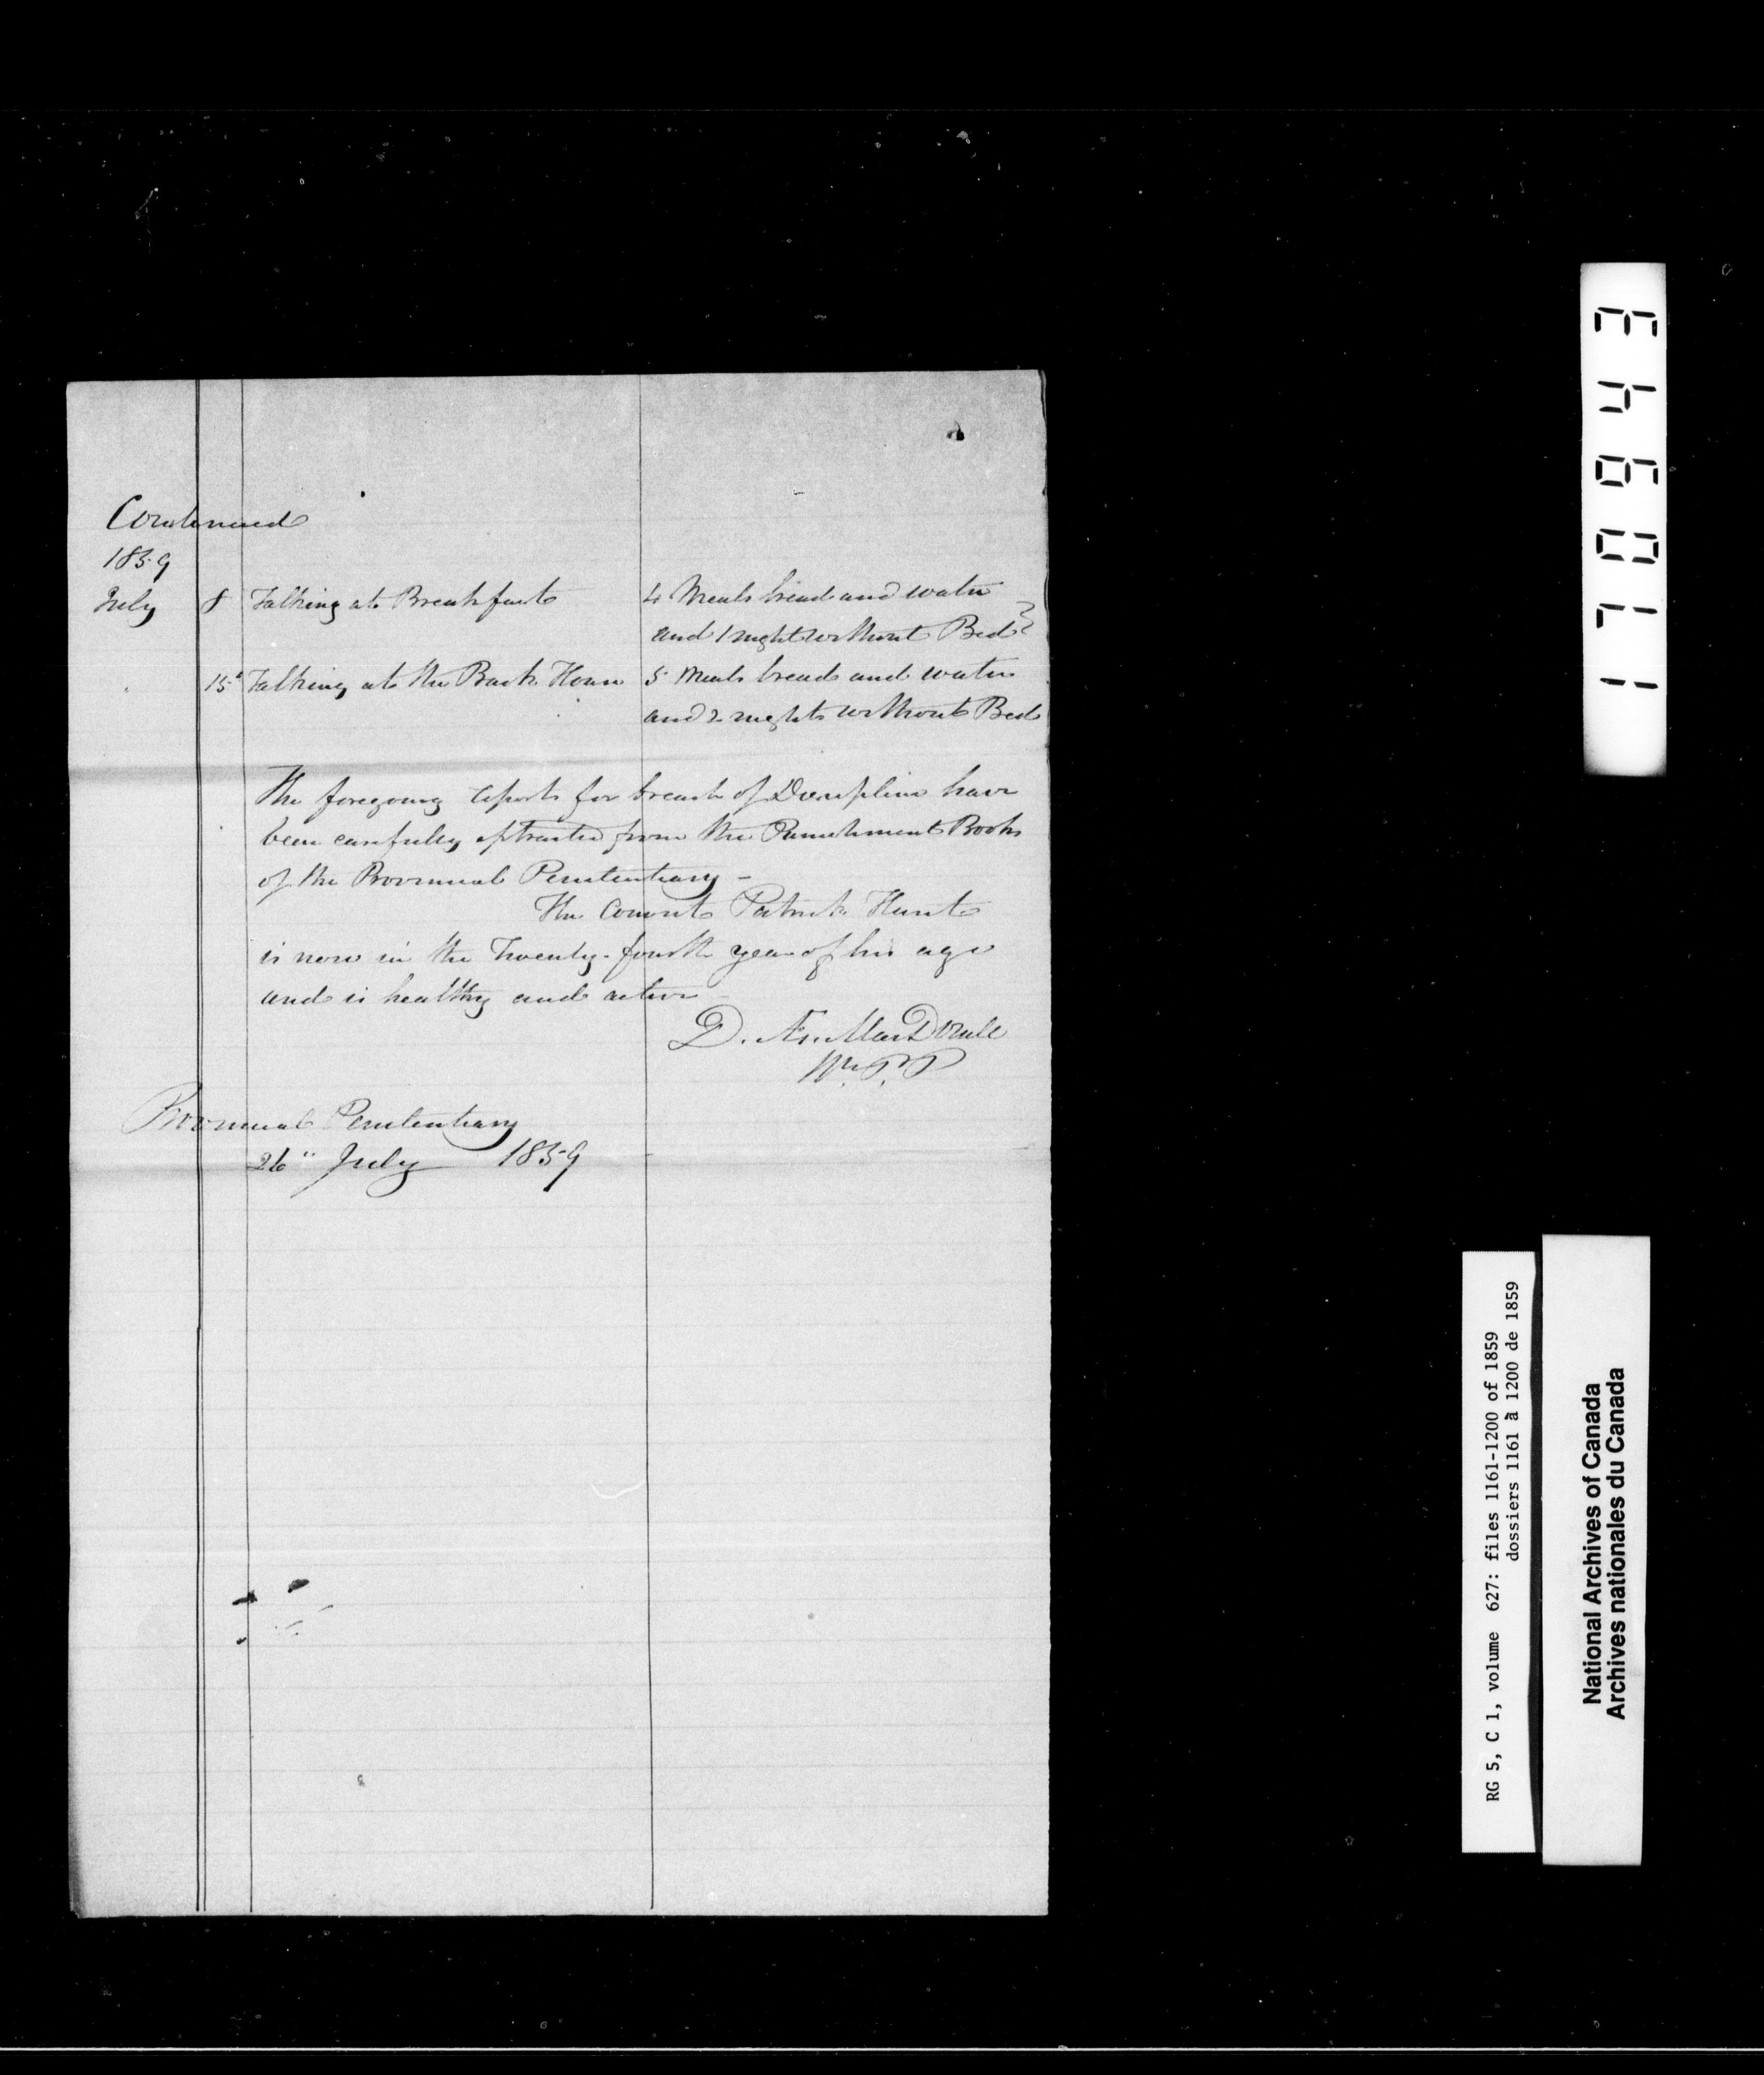 Continued
1859
July 8 Talking at Breakfast 4 Meals bread and water
and 1 night without Bed
15" Talking at the Back House 5 Meals bread and water
and 2 nights without Bed
The foregoing reports for breach of Discipline have
been carefully extracted from the Punishment Books
of the Provincial Penitentiary -
The Convict Patrick Hunt
is now in the Twenty-fourth year of his age
and is healthy and active
D. Æ. MacDonell
Wn. P. P
Provincial Penitentiary
26" July 1859
RG 5, C 1, volume 627: files 1161-1200 of 1859
dossiers 1161 à 1200 de 1859
National Archives of Canada
Archives nationales du Canada